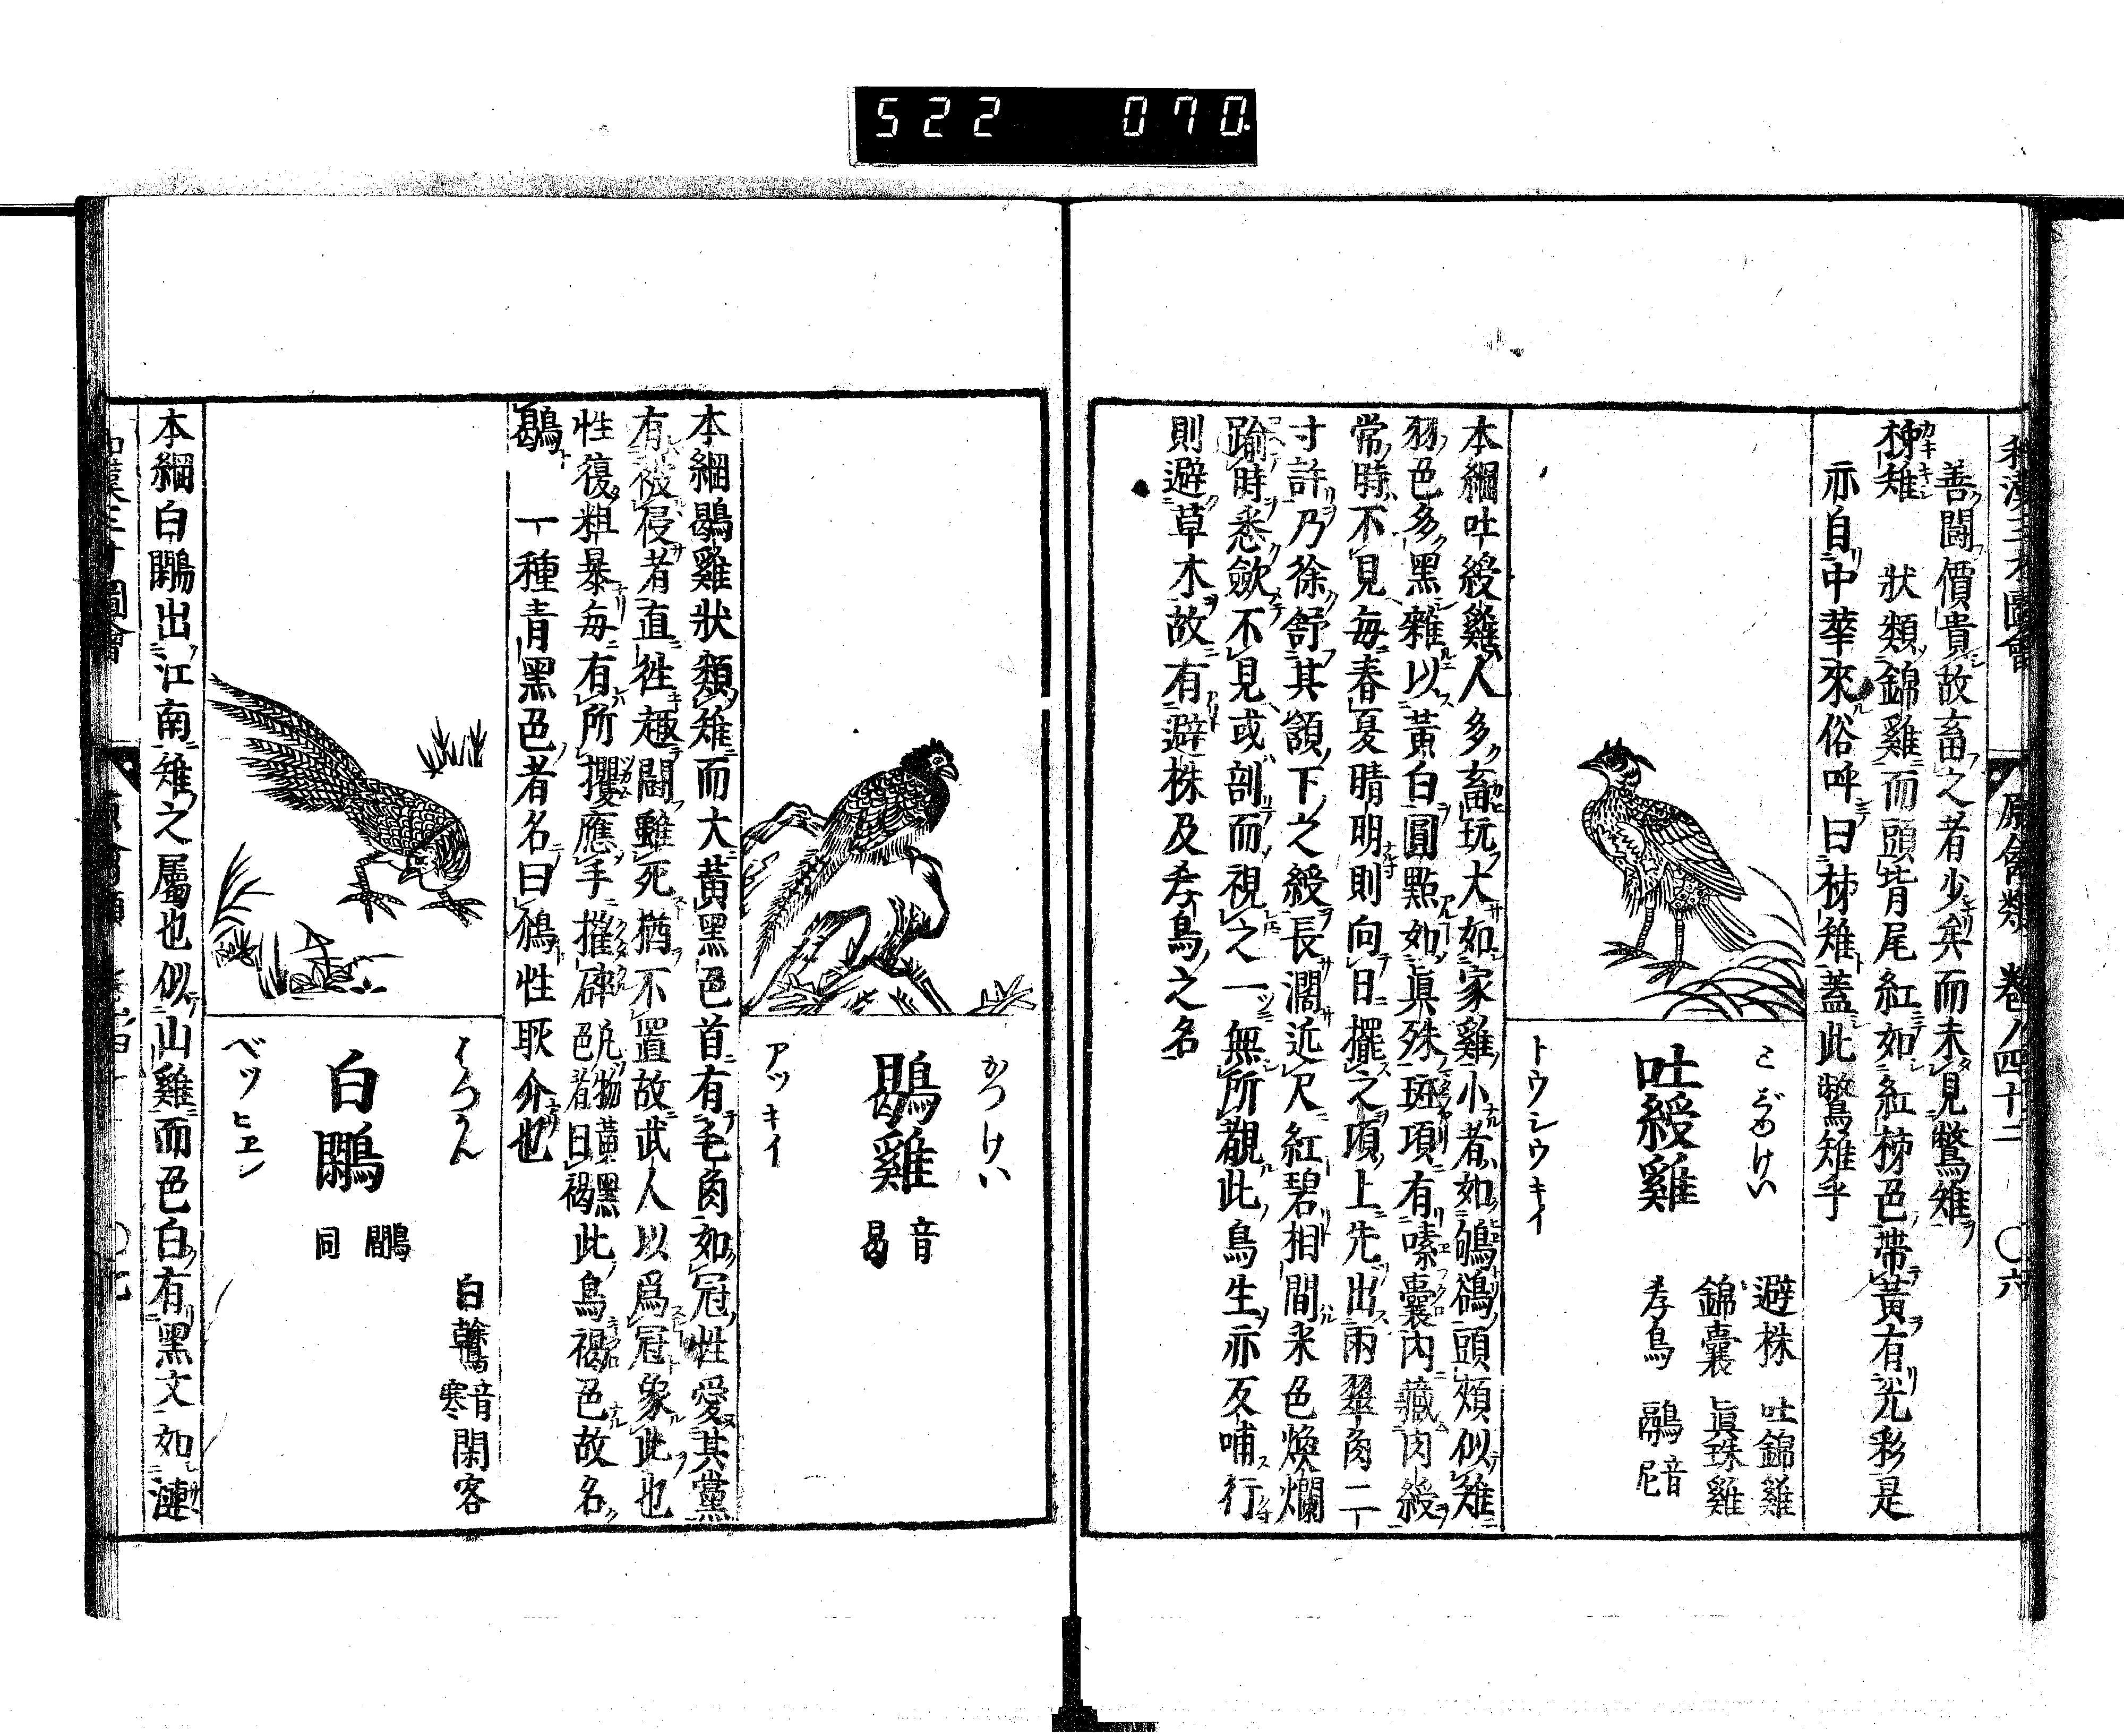 522 070.
和漢三才圖會 原禽類 卷ノ四十二 〇六
善鬪價貴故畜之者少矣而未見鷩雉
柹雉 狀類錦雞而頭背尾紅如紅柹色帶黃有光彩是
亦自中華來俗呼曰柹雉蓋此鷩雉乎
吐綬雞
トウシウキイ
避株 吐錦雞
錦囊 眞珠雞
孝鳥 鷊音
本綱吐綬雞人多畜玩大如家雞小者如鴝鵒頭頰似雉
羽色多黑雜以黃白圓點如眞殊斑項有嗉囊内藏肉綬
常時不見每春夏晴明則向日擺之項上先出兩翠角二
寸許乃徐舒其頷下之綬長濶近尺紅碧相間米色煥爛
踰時悉歛不見或剖而視之一無所覩此鳥生亦反哺行
則避草木故有避株及孝鳥之名
かつけい
鶡雞 音曷
アツキイ
本綱鶡雞狀類雉而大黃黑色首有毛角如冠性愛其黨
有被侵者直徃趣鬪雖死猶不置故武人以爲冠象此也
性復粗暴每有所攫應手摧碎凡物黃黑色者曰褐此鳥褐色故名
鶡 一種青黑色者名曰鳻性耿介也
はつかん
白鷴 鷳同
ベツヒヱン
白鶾音寒 閑客
本綱白鷴出江南雉之屬也似山雞而色白有黑文如漣